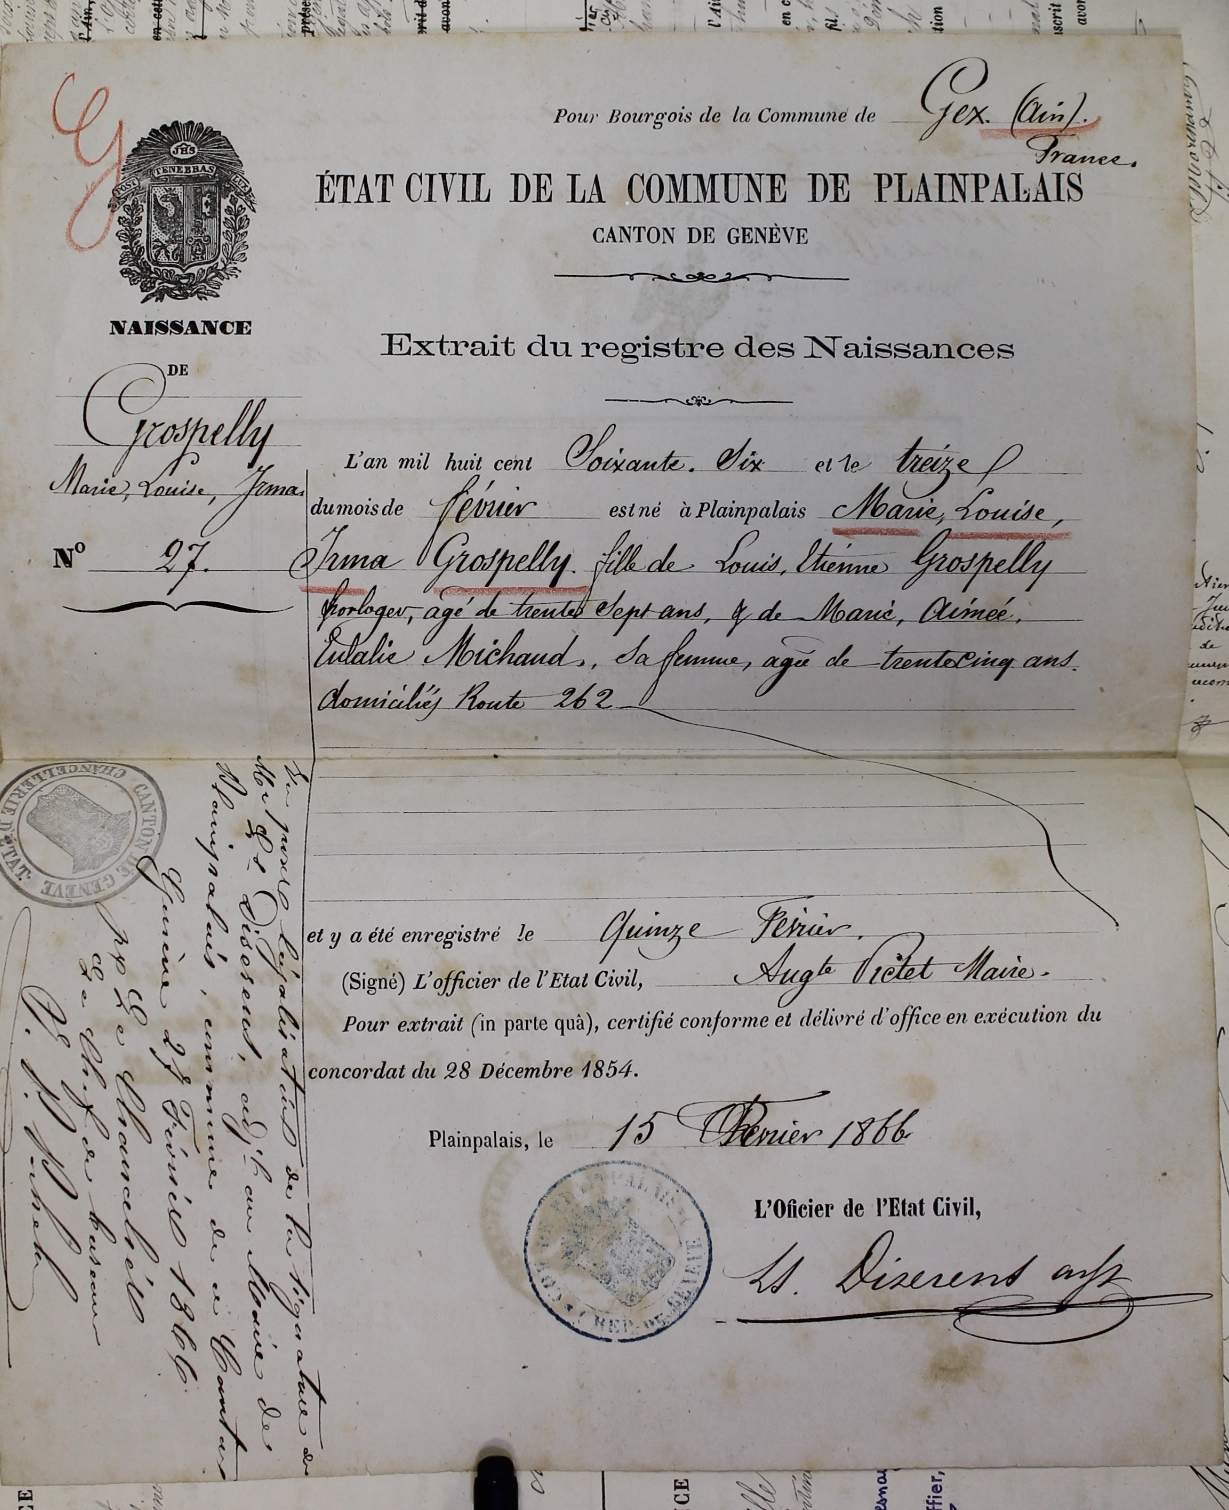 Pour Bourgois de la Commune de Gex. (Ain).
France.
ÉTAT CIVIL DE LA COMMUNE DE PLAINPALAIS
CANTON DE GENÈVE
JHS
POST TENEBRAS
NAISSANCE
DE
Grospelly
Marie, Louise, Irma.
Nº 27.
Extrait du registre des Naissances
L'an mil huit cent Soixante. Six et le treize
du mois de février est né à Plainpalais Marie, Louise,
Irma Grospelly. fille de Louis, Etienne Grospelly
horloger, agé de trente Sept ans, & de Marie, Aimée,
Eulalie Michaud, sa femme, agée de trente cinq ans.
domiciliés Route 262
et y a été enregistré le Quinze Février.
(Signé) L'officier de l'Etat Civil, Augte Pictet Maire.
Pour extrait (in parte quâ), certifié conforme et délivré d'office en exécution du
concordat du 28 Décembre 1854.
Plainpalais, le 15 Février 1866
L'Oficier de l'Etat Civil,
Ls. Diserens adjt
CANTON DE GENÈVE
CHANCELLERIE D'ÉTAT.
Vu pour légalisation de la signature de
Mr Ls Diserens, adjt. au Maire de
Plainpalais, commune de ce Canton
Genève 27 Février 1866
pr Le Chancelier
Le Chef de bureau